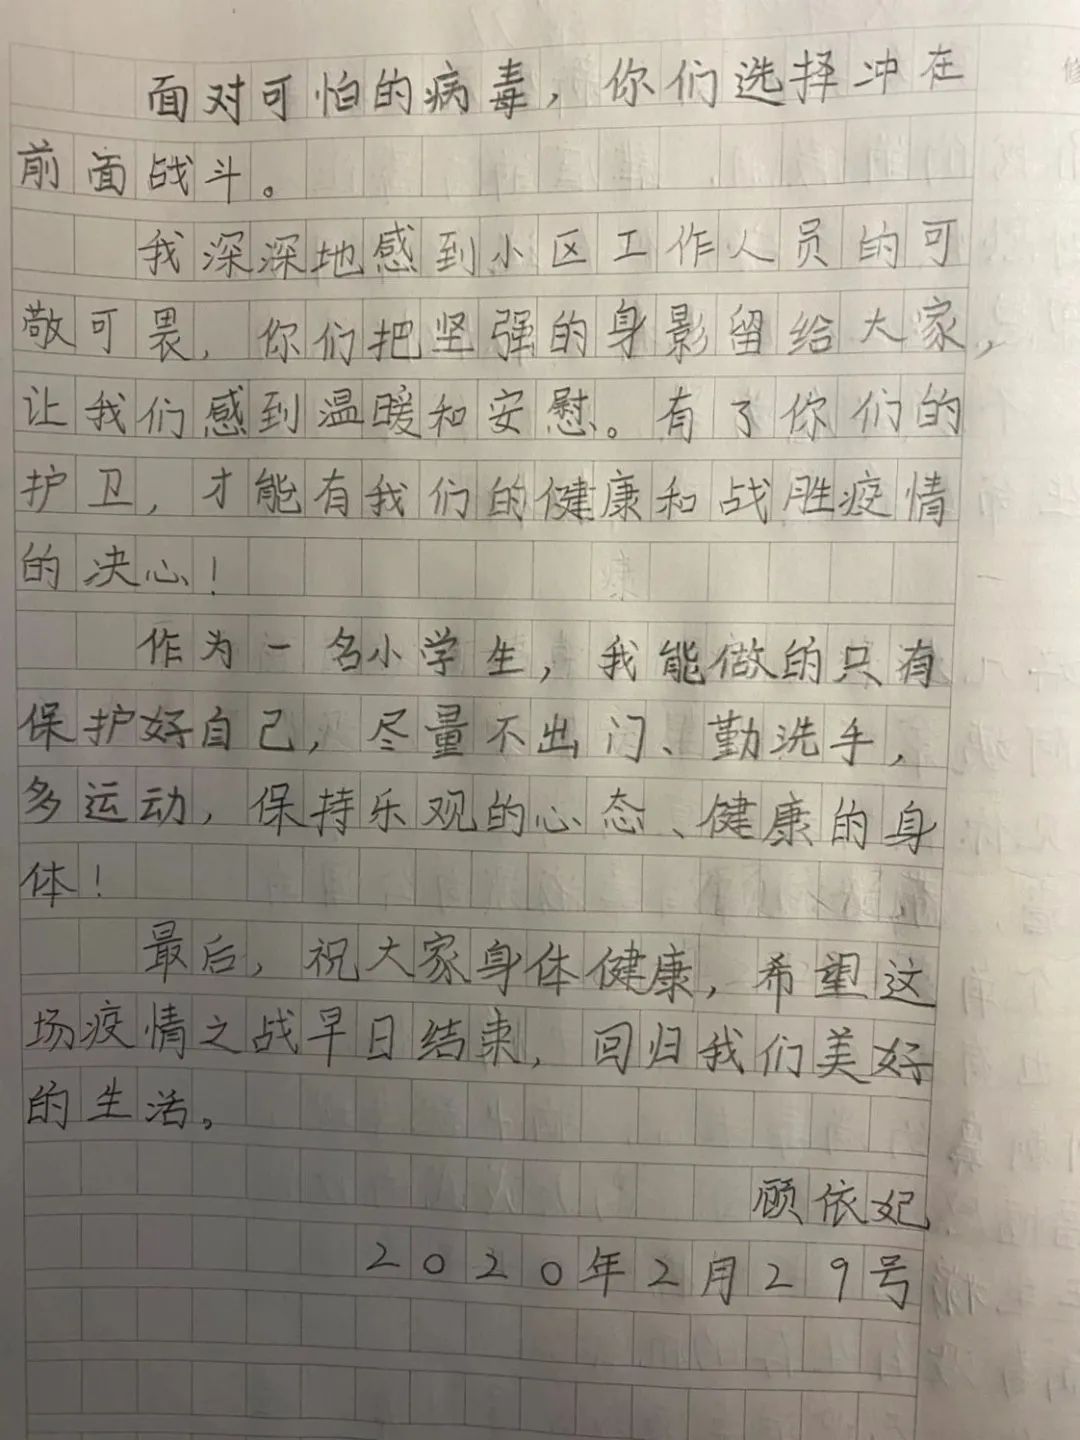 面对可怕的病毒，你们选择冲在
前面战斗。
我深深地感到小区工作人员的可
敬可畏，你们把坚强的身影留给大家，
让我们感到温暖和安慰。有了你们的
护卫，才能有我们的健康和战胜疫情
的决心！
作为一名小学生，我能做的只有
保护好自己，尽量不出门、勤洗手，
多运动，保持乐观的心态、健康的身
体！
最后，祝大家身体健康，希望这
场疫情之战早日结束，回归我们美好
的生活。
顾依妃
2020年2月29号